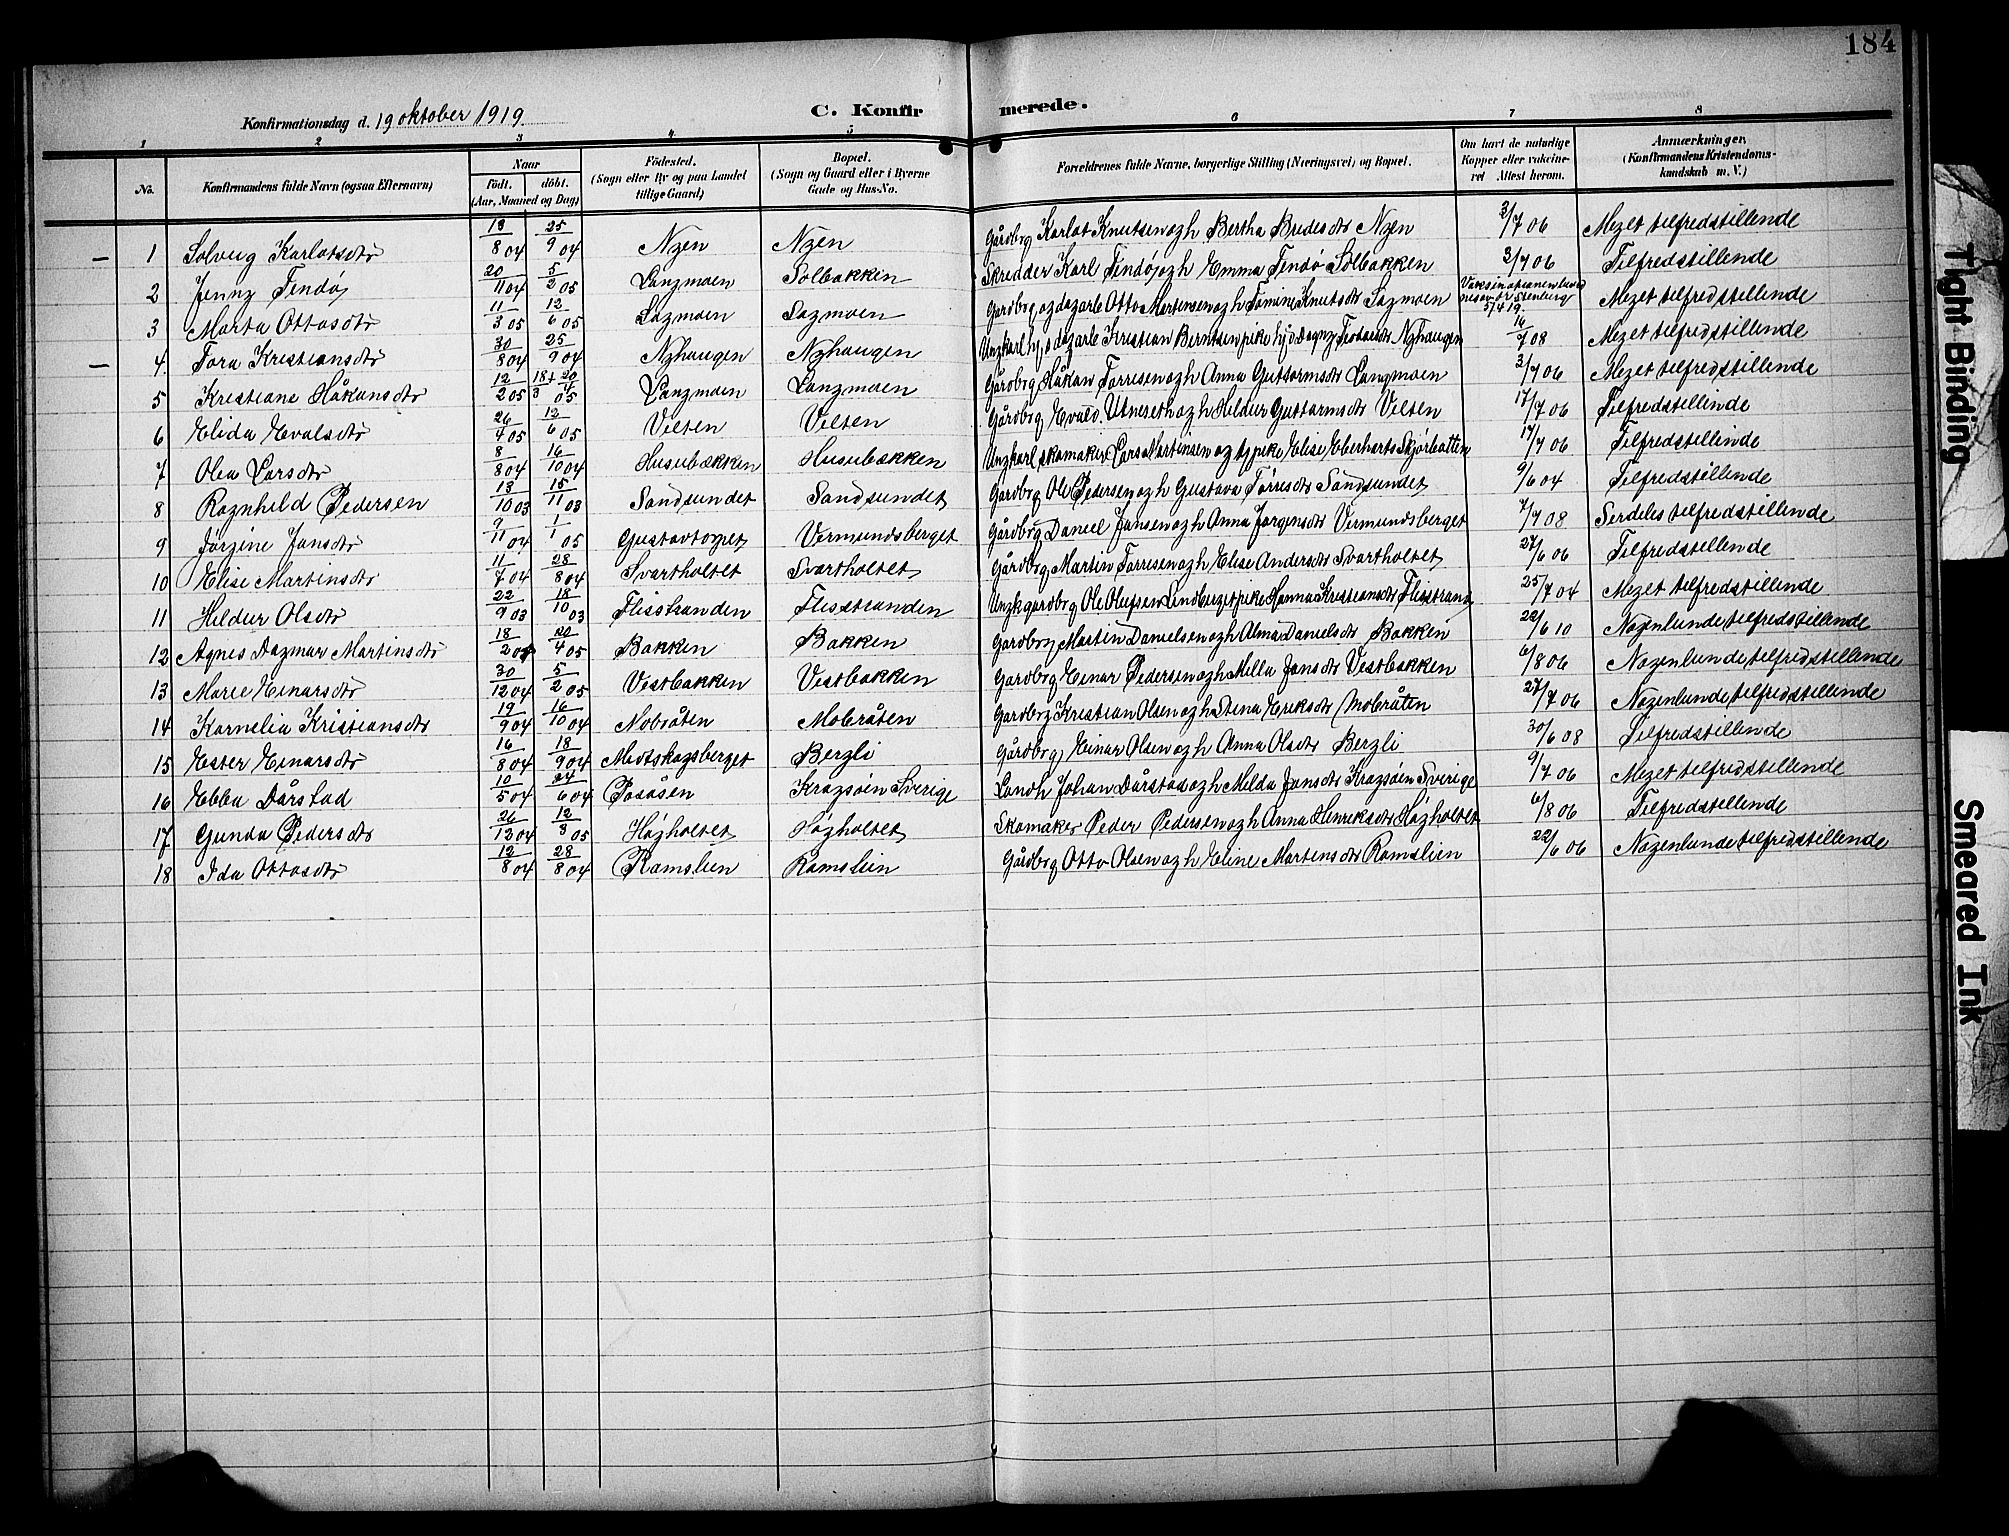 184
Konfirmationsdag d. 19 oktober 1919. C. Konfirmerede.
1 2 3 4 5 6 7 8
No. Konfirmandens fulde Navn (ogsaa Efternavn) Naar født. døbt. (Aar, Maaned og Dag) Fødested. (Sogn eller By og paa Landet tillige Gaard) Bopæl. (Sogn og Gaard eller i Byerne Gade og Hus-No. Forældrenes fulde Navne, borgerlige Stilling (Næringsvei) og Bopæl. Om havt de naturlige Kopper eller vakcineret Attest herom. Anmærkninger. (Konfirmandens Kristendomskundskab m. V.)
1 Solveig Karlotsdtr 19/8 04 25/9 04 Nyen Nyen Gårdbrg Karlot Knutsen og h Bertha Bredesdtr Nyen 3/7 06 Meget tilfredstillende
2 Jenny Tendøy 20/11 04 5/2 05 Langmoen Solbakken Skredder Karl Tendøy og h Emma Tendø Solbakken 3/7 06 Tilfredstillende
3 Marta Ottosdtr 11/3 05 12/6 05 Sagmoen Sagmoen Gardbrg og dagarb Otto Mortensen og h Knutsdtr Sagmoen Meget tilfredstillende
4 Tora Kristiansdtr 30/8 04 25/9 04 Nyhaugen Nyhaugen Ungkarl dagarb Kristian Berntsen pike Dagny Nyhaugen 16/7 08 Meget tilfredstillende
5 Kristiane Håkansdtr 12/2 05 18/3 + 20/4 05 Langmoen Langmoen Gårdbrg Håkan Torresen og h Anna Guttormsdtr Langmoen 3/7 06 Meget tilfredstillende
6 Elida Evalsdtr 26/4 05 12/6 05 Velten Velten Gårdbrg Evald Utneseth og h Heldur Guttormsdtr Velten 17/7 06 Tilfredstillende
7 Olea Larsdtr 8/8 04 16/10 04 Husubækken Husubækken Ungkarl skomaker Lars Martinsen og pike Elise 17/7 06 Tilfredstillende
8 Ragnhild Pedersen 13/10 03 15/11 03 Sandsundet Sandsundet Gårdbrg Ole Pedersen og h Gustava Torresdtr Sandsundet 9/6 04 Tilfredstillende
9 Jørgine Jansdtr 9/11 04 1/1 05 Gustavtorpet Vermundsberget Gårdbrg Daniel Jansen og h Anna Jørgensdtr Vermundsberget 7/7 08 Serdeles tilfredstillende
10 Elise Martinsdtr 11/7 04 28/8 04 Svartholtet Svartholtet Gårdbrg Martin Torresen og h Elise Andersdtr Svartholtet 27/6 06 Tilfredstillende
11 Heldur Olsdtr 22/9 03 18/10 03 Flisstranden Flisstranden Ungk gardbrg Ole Olufsen Lindberget pike Hanna Kristiansdtr Flisstrand 25/7 04 Meget tilfredstillende
12 Agnes Dagmar Martinsdtr 18/2 05 20/4 05 Bakken Bakken Gardbrg Martin Danielsen og h Alma Danielsdtr Bakken 22/6 10 Nogenlunde tilfredstillende
13 Marie Einarsdtr 30/12 04 5/2 05 Vestbakken Vestbakken Gardbrg Einar Pedersen og h Milla Jansdtr Vestbakken 6/8 06 Nogenlunde tilfredstillende
14 Kornelia Kristiansdtr 19/9 04 16/10 04 Mobråten Mobråten Gardbrg Kristian Olsen og h Stina Eriksdtr Mobråten 27/7 06 Nogenlunde tilfredstillende
15 Ester Einarsdtr 16/8 04 18/9 04 Medtskogsberget Bergli Gårdbrg Einar Olsen og h Anna Olsdtr Bergli 30/6 08 Tilfredstillende
16 Ebba Dårstad 10/5 04 24/6 04 Posåsen Kragsøien Sverige Landh Johan Dårstad og h Milda Jansdtr Kragsøien Sverige 9/7 06 Meget tilfredstillende
17 Gunda Pedersdtr 26/12 04 12/3 05 Høgholtet Høgholtet Skomaker Peder Pedersen og h Anna Henriksdtr Høgholtet 6/8 06 Tilfredstillende
18 Ida Ottosdtr 12/8 04 28/8 04 Ramslien Ramslien Gårdbrg Otto Olsen og h Eline Martensdtr Ramslien 22/6 06 Nogenlunde tilfredstillende
Tight Binding
Smeared Ink